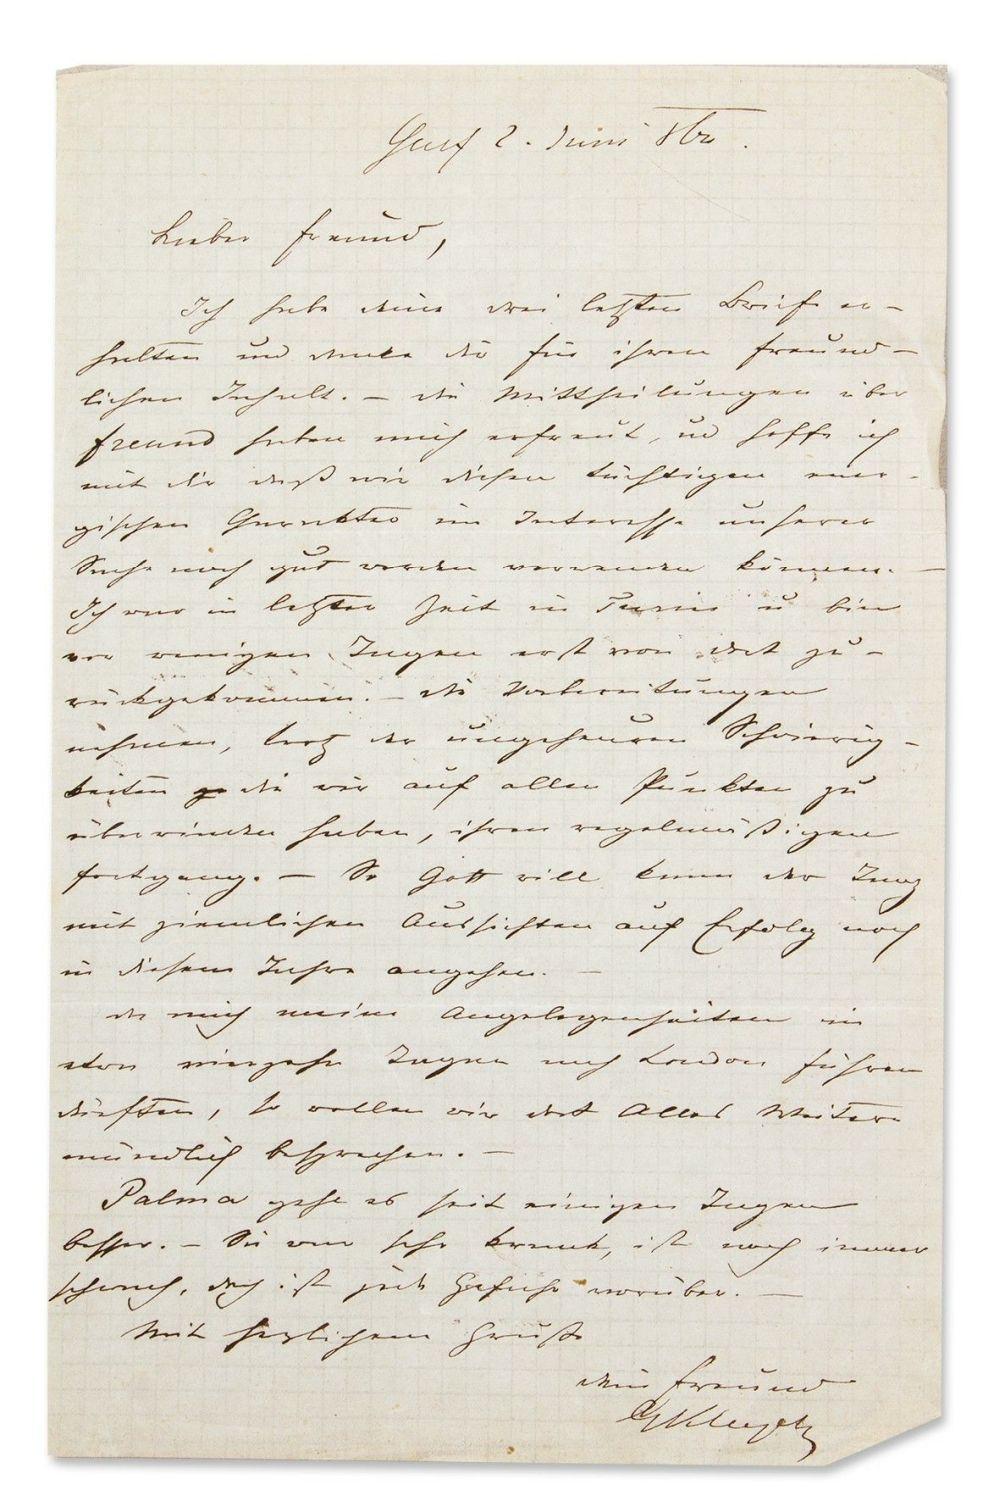 Genf 2. Juni 860.
Lieber Freund,
Ich habe deine drei letzten Briefe er-
halten und danke dir für ihren freund-
lichen Inhalt. – die Mittheilungen über
Freund haben mich erfreut, und hoffe ich
mit dir daß wir diesen tüchtigen ener-
gischen Charakter im Interesse unserer
Sache noch gut werden verwenden können. –
Ich war in letzter Zeit in Turin u bin
vor wenigen Tagen erst von dort zu-
rückgekommen. – die Vorbereitungen
nehmen, trotz der ungeheuren Schwierig-
keiten die wir auf allen Punkten zu
überwinden haben, ihren regelmäßigen
Fortgang. – So Gott will kann der Tanz
mit ziemlichen Aussichten auf Erfolg noch
in diesem Jahre angehen. –
da mich meine Angelegenheiten in
etwa vierzehn Tagen nach London führen
dürften, so wollen wir dort Alles Weitere
mündlich besprechen. –
Palma geht es seit einigen Tagen
besser. – Sie war sehr krank, ist noch immer
schwach, doch ist jede Gefahr vorüber. –
Mit herzlichem Gruße
dein Freund
GKlapka